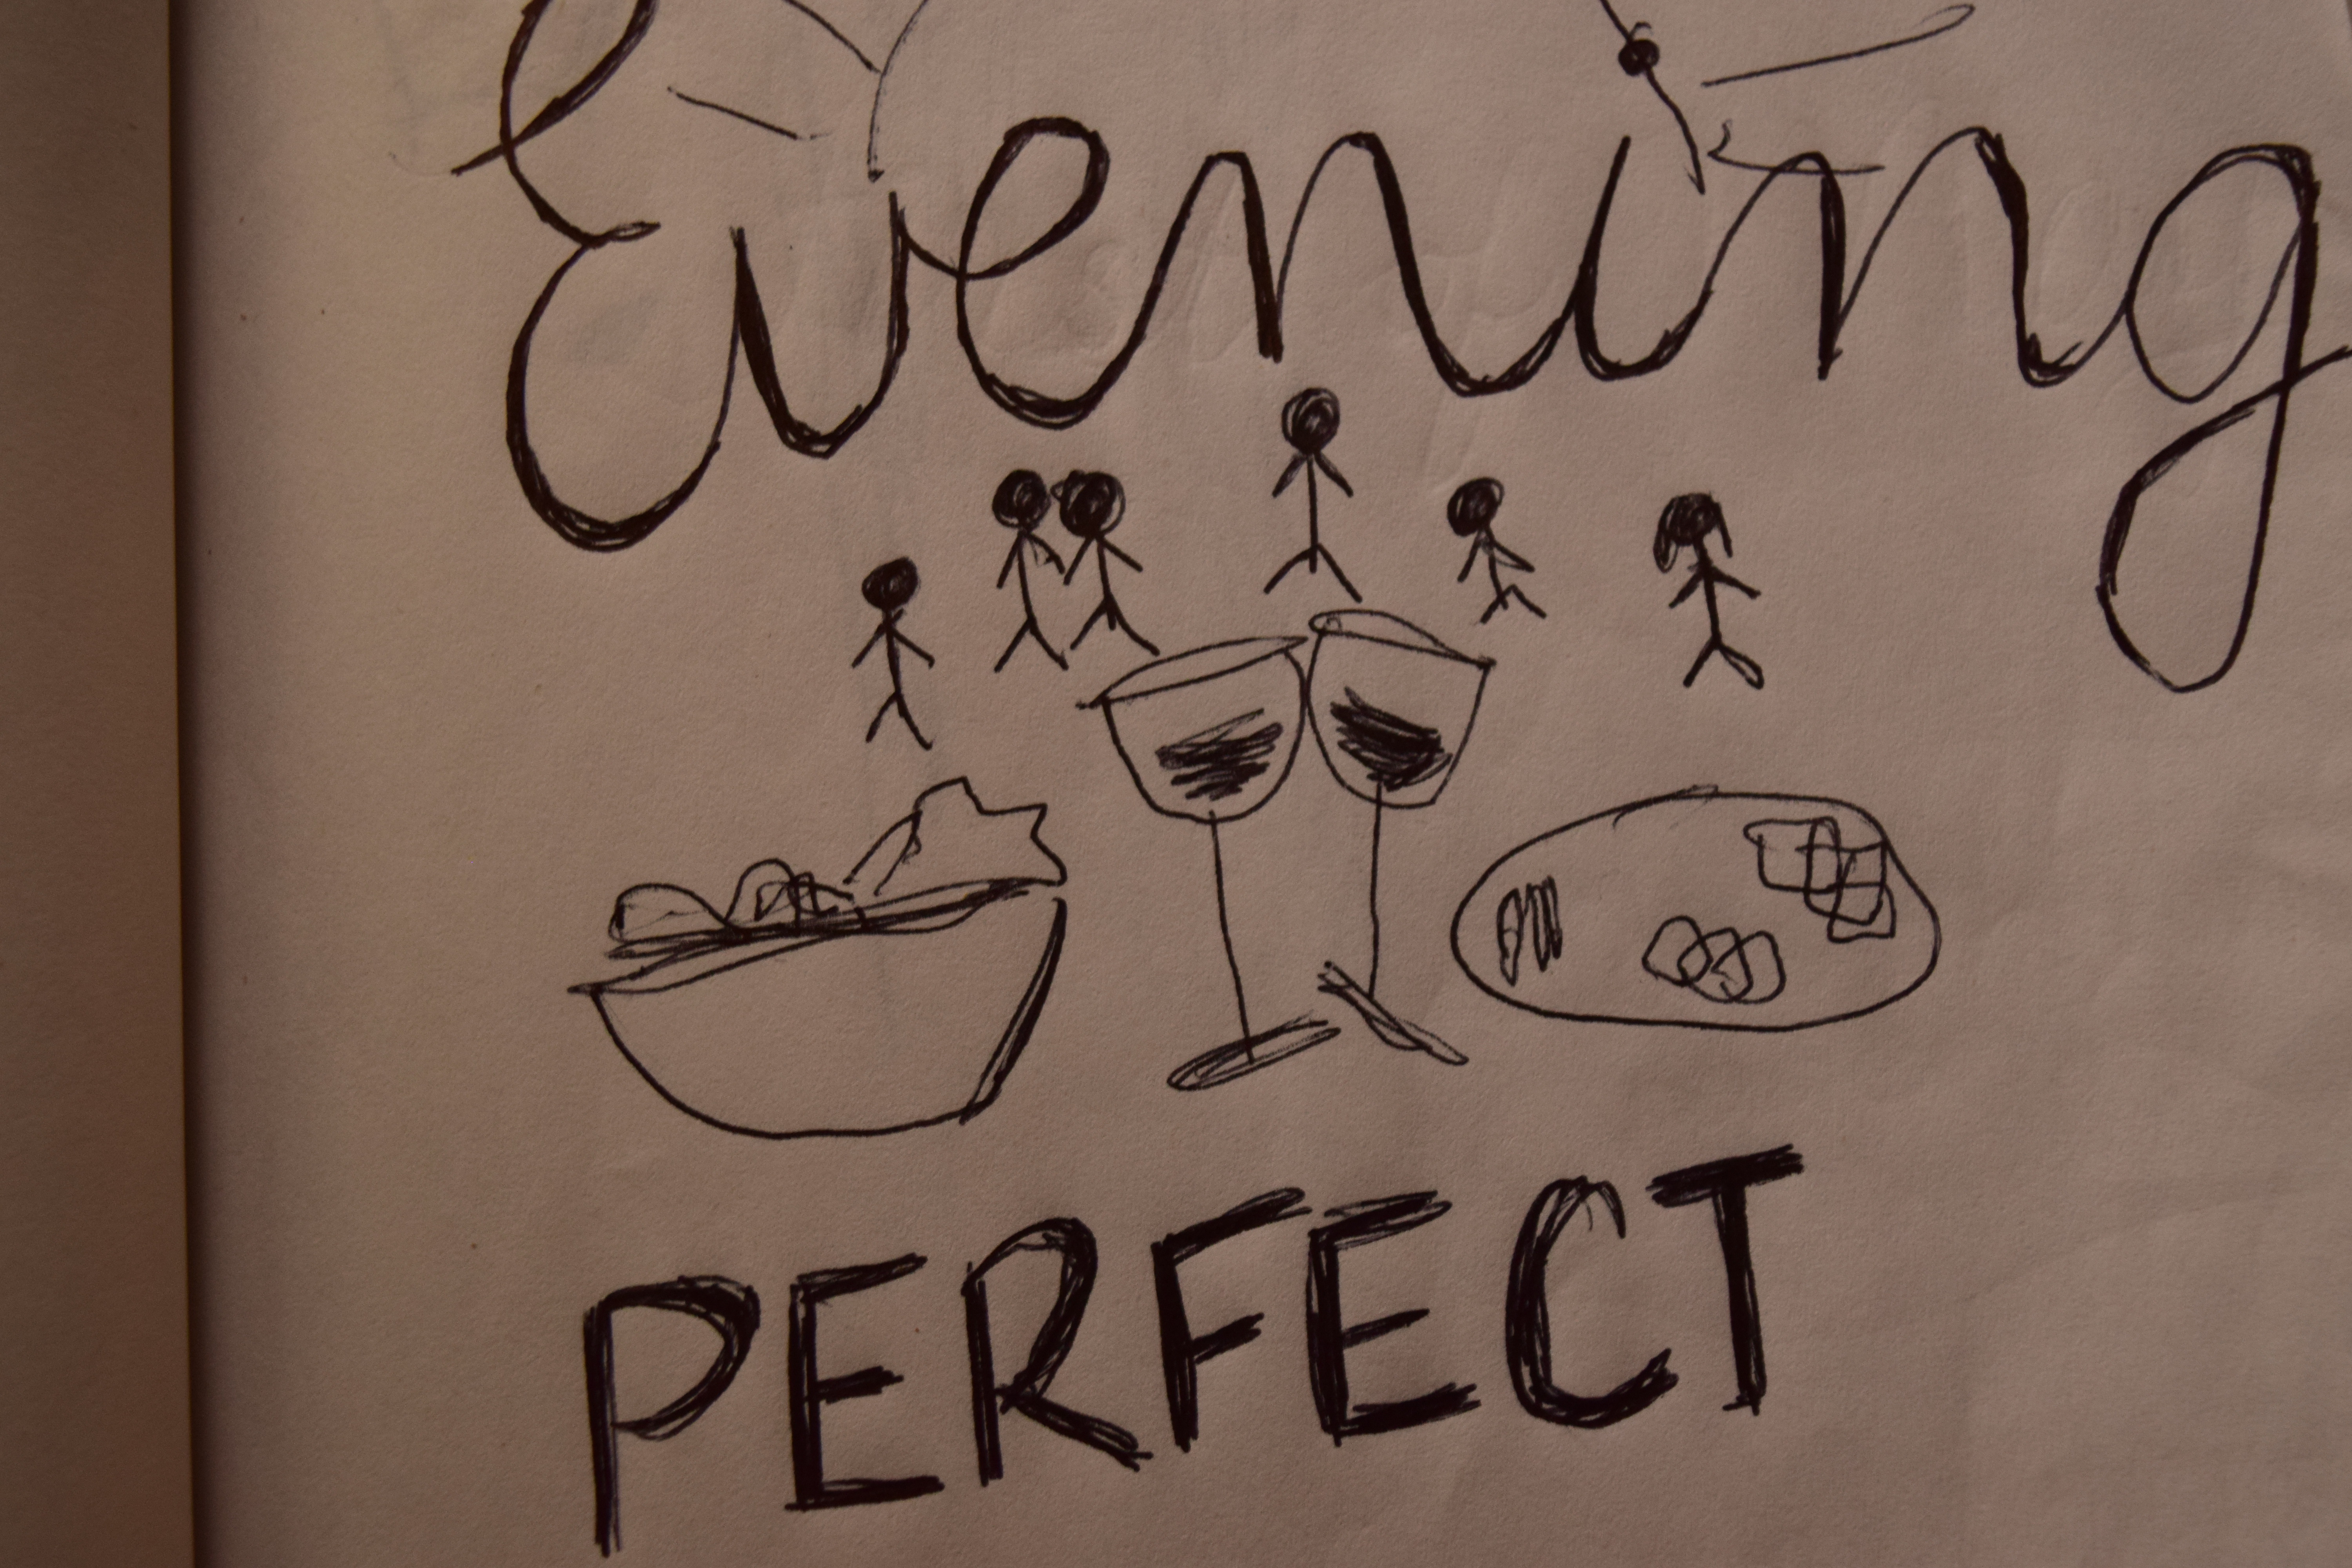 Evening
PERFECT